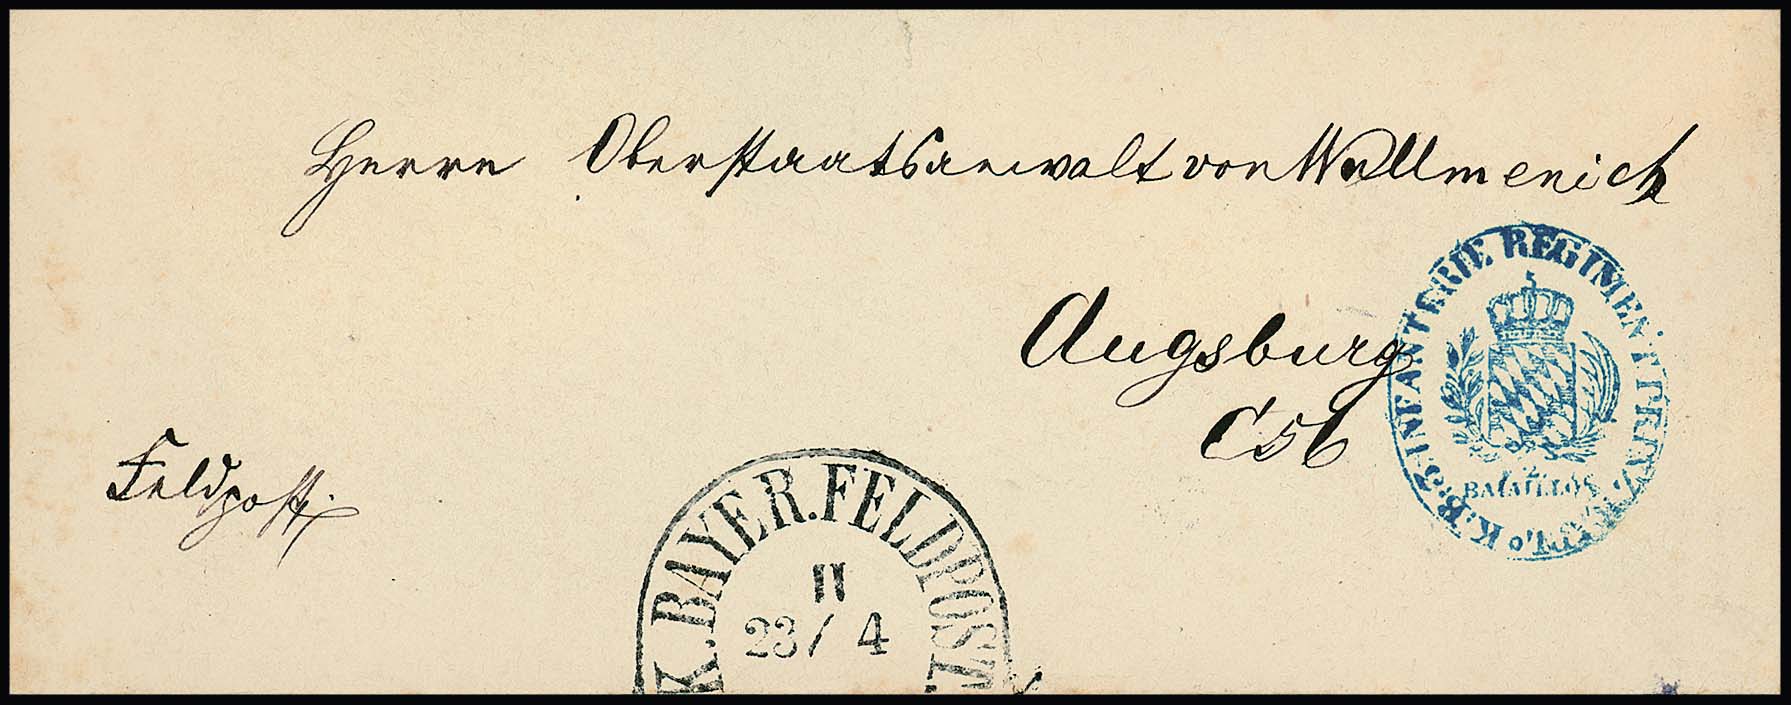 Herrn Oberstaatsanwalt von Wallmenich
Augsburg
Feldpost.
K. BAYER. FELDPOST
II
23/4
K.B. 3. INFANTERIE REGIMENT
2.
BATAILLON